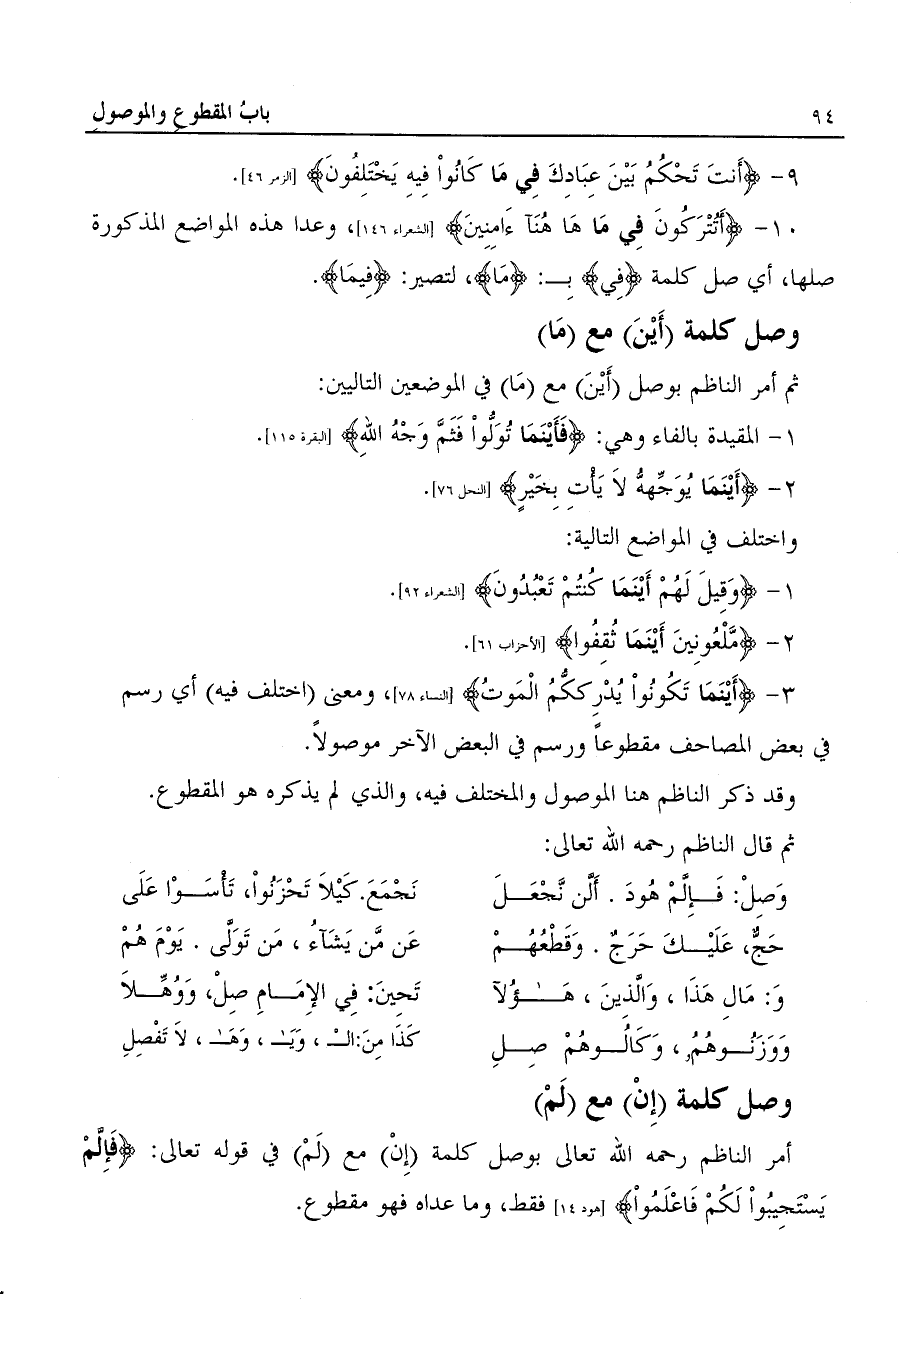 ٩٤ بابُ المقطوعِ والموصولِ
٩- ﴿أَنتَ تَحْكُمُ بَيْنَ عِبَادِكَ فِي مَا كَانُواْ فِيهِ يَخْتَلِفُونَ﴾ [الزمر ٤٦].
١٠- ﴿أَتُتْرَكُونَ فِي مَا هَا هُنَآ ءَامِنِينَ﴾ [الشعراء ١٤٦]، وعدا هذه المواضع المذكورة
صلها، أي صل كلمة ﴿فِي﴾ بـــ: ﴿مَا﴾، لتصير: ﴿فِيمَا﴾.
وصل كلمة (أَيْنَ) مع (مَا)
ثم أمر الناظم بوصل (أَيْنَ) مع (مَا) في الموضعين التاليين:
١- المقيدة بالفاء وهي: ﴿فَأَيْنَمَا تُوَلُّواْ فَثَمَّ وَجْهُ اللهِ﴾ [البقرة ١١٥].
٢- ﴿أَيْنَمَا يُوَجِّههُّ لاَ يَأْتِ بِخَيْرٍ﴾ [النحل ٧٦].
واختلف في المواضع التالية:
١- ﴿وَقِيلَ لَهُمْ أَيْنَمَا كُنتُمْ تَعْبُدُونَ﴾ [الشعراء ٩٢].
٢- ﴿مَّلْعُونِينَ أَيْنَمَا ثُقِفُوا﴾ [الأحزاب ٦١].
٣- ﴿أَيْنَمَا تَكُونُواْ يُدْرِككُّمُ الْمَوتُ﴾ [النساء ٧٨]، ومعنى (اختلف فيه) أي رسم
في بعض المصاحف مقطوعاً ورسم في البعض الآخر موصولاً.
وقد ذكر الناظم هنا الموصول والمختلف فيه، والذي لم يذكره هو المقطوع.
ثم قال الناظم رحمه الله تعالى:
وَصِلْ: فَــإِلَّمْ هُودَ . أَلَّن نَّجْعَــلَ نَجْمَعَ. كَيْلاَ تَحْزَنُواْ، تَأْسَــوْا عَلَى
حَجٌّ، عَلَيْــكَ حَرَجٌ . وَقَطْعُهُــمْ عَن مَّن يَشَآءُ ، مَن تَوَلَّى . يَوْمَ هُمْ
وَ: مَالِ هَذَا ، وَالَّذِينَ ، هَــؤُلآ تَحِينَ: فِي الإِمَــامِ صِلْ، وَوُهِّــلاَ
وَوَزَنُــوهُمُ، وَكَالُــوهُمْ صِــلِ كَذَا مِنَ:الــْ ، وَيَــ ، وَهَــ ، لاَ تَفْصِلِ
وصل كلمة (إِنْ) مع (لَمْ)
أمر الناظم رحمه الله تعالى بوصل كلمة (إِنْ) مع (لَمْ) في قوله تعالى: ﴿فَإِلَّمْ
يَسْتَجِيبُواْ لَكُمْ فَاعْلَمُواْ﴾ [هود ١٤] فقط، وما عداه فهو مقطوع.